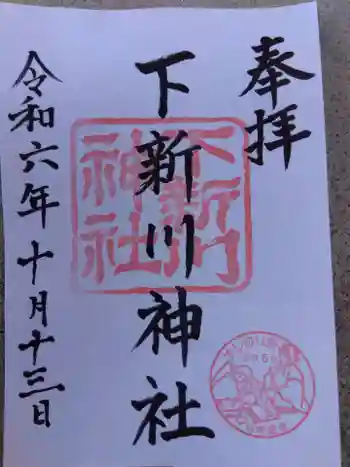 奉拝
下新川神社
令和六年十月十三日
下新川
神社